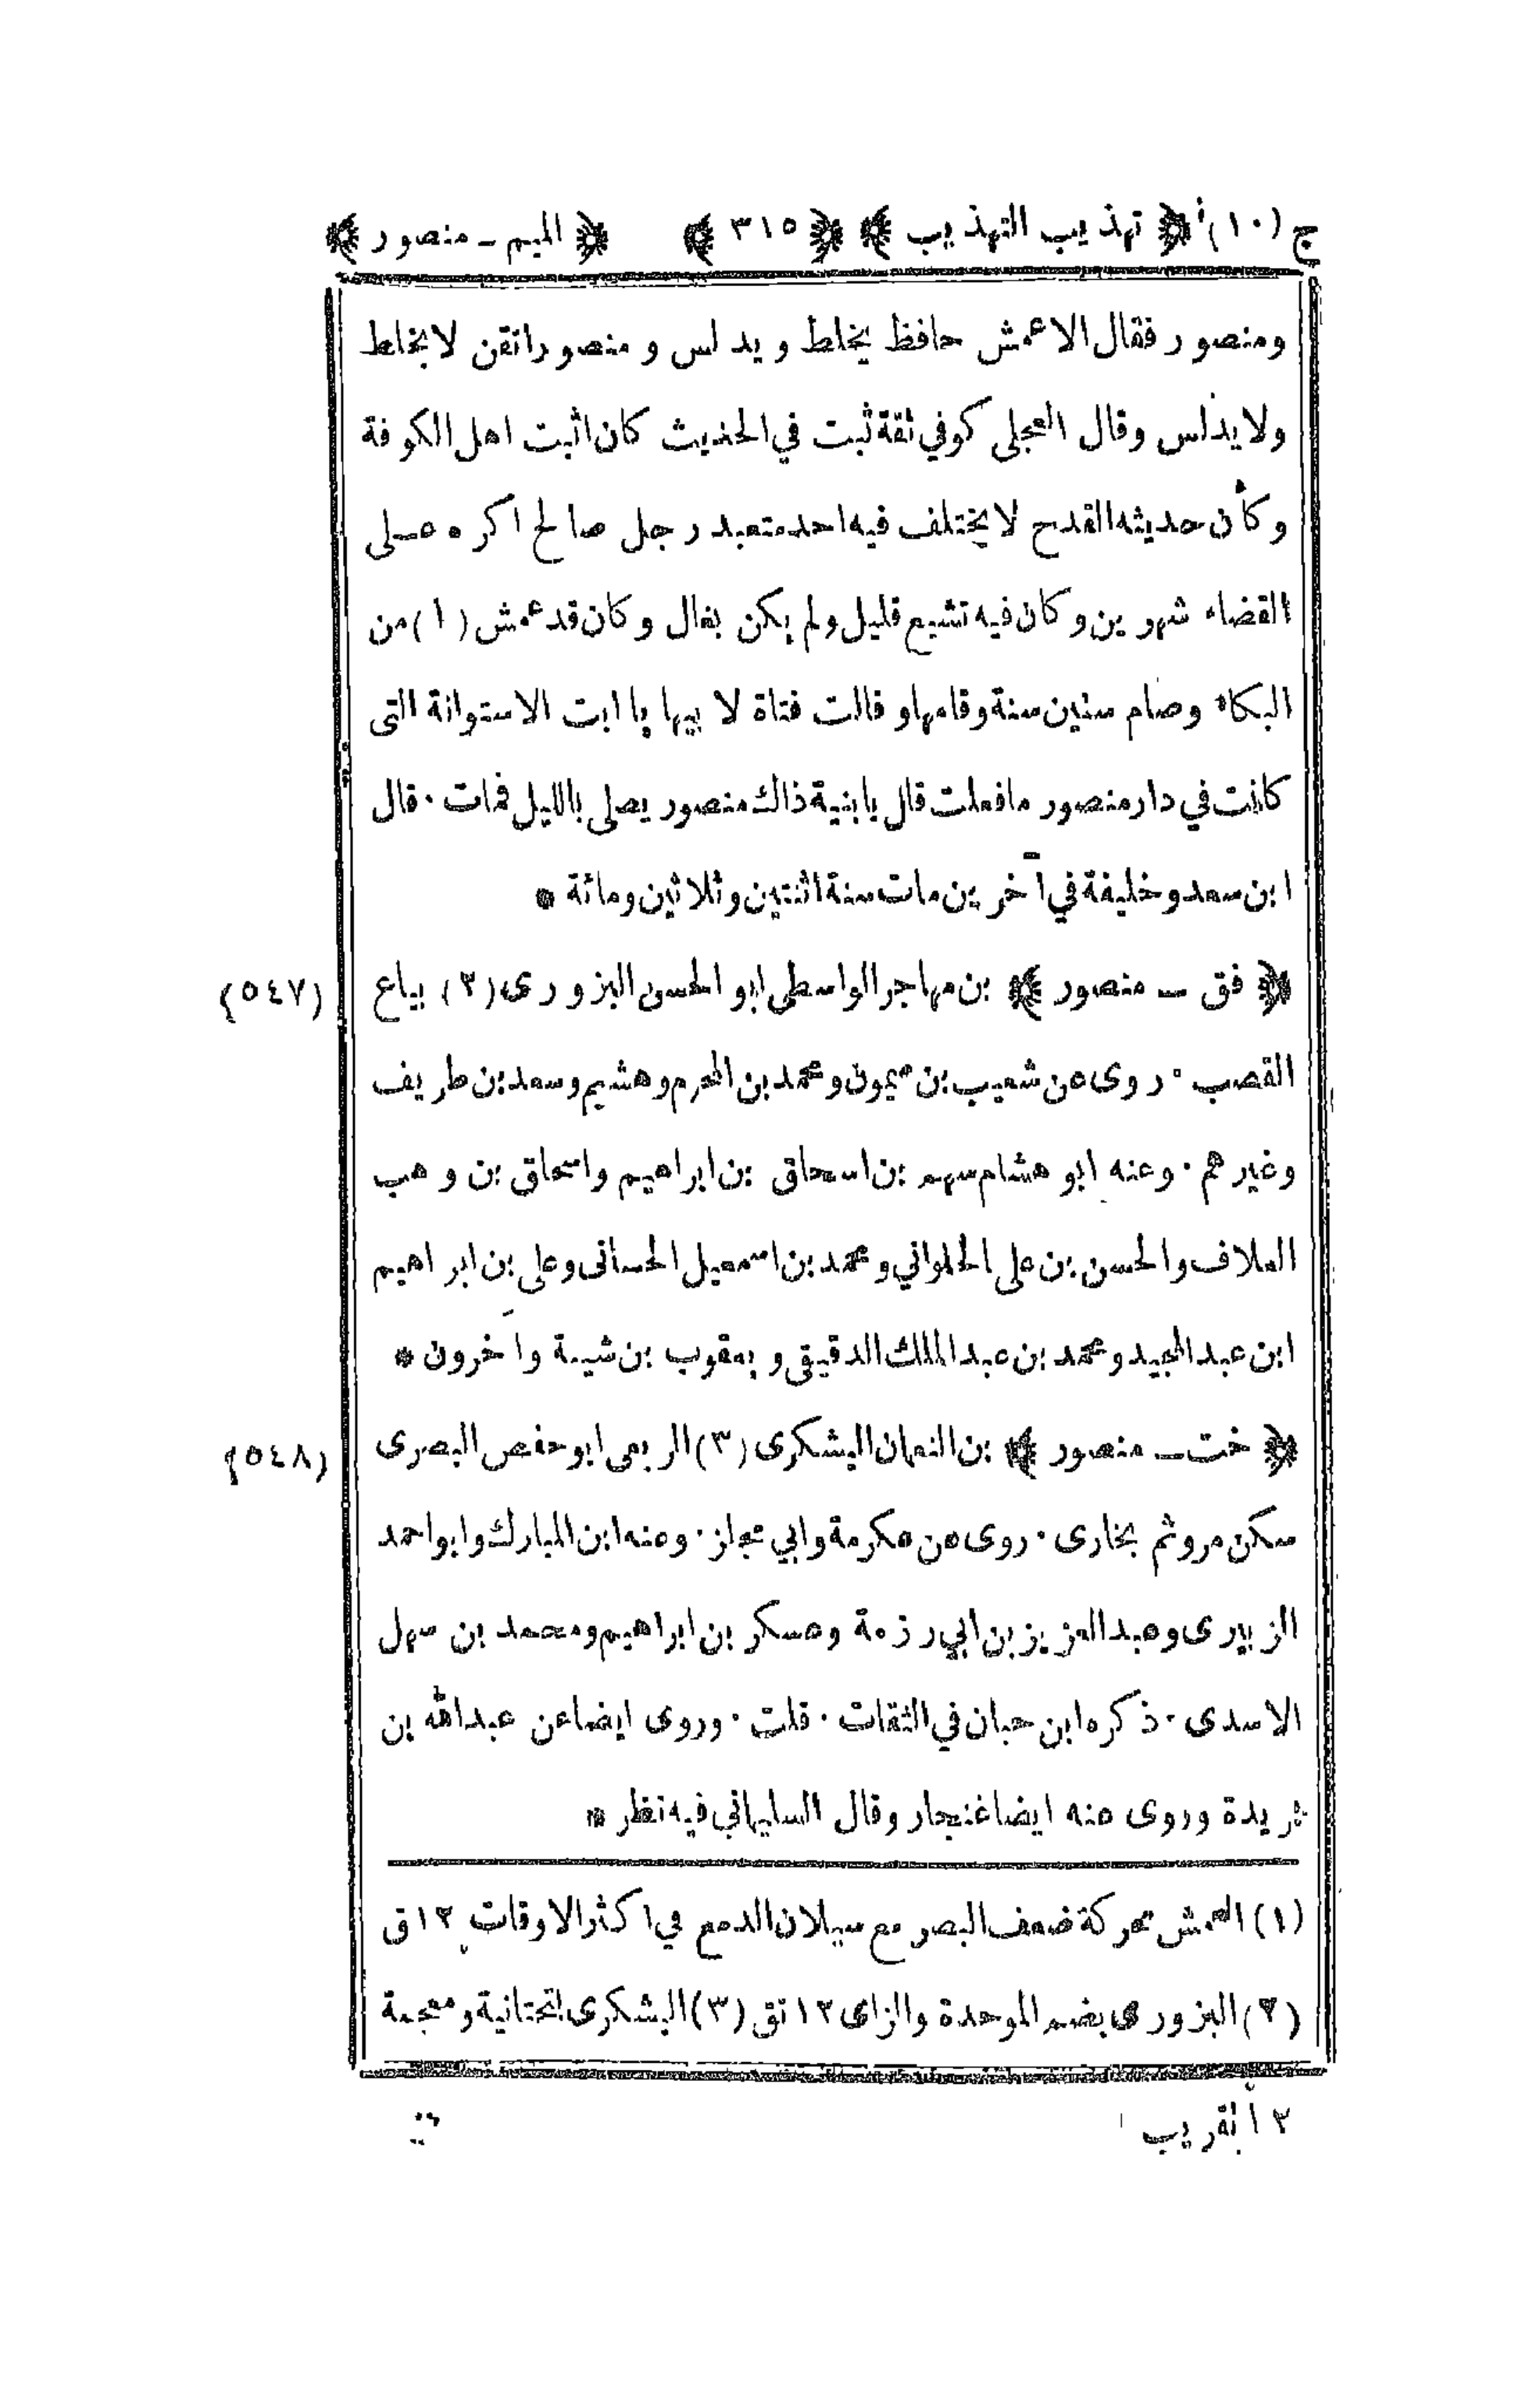 ج (١٠) ﴿ تهذيب التهذيب ﴾ ﴿ ٣١٥ ﴾ ﴿ الميم ـ منصور ﴾
ومنصور فقال الاعمش حافظ يخلط ويدلس ومنصور اتقن لا يخلط
ولا يدلس وقال العجلى كوفي ثقة ثبت في الحديث كان اثبت اهل الكوفة
وكأن حديثه القدح لا يختلف فيه احد متعبد رجل صالح اكره على
القضاء شهرين وكان فيه تشيع قليل ولم يكن بغال وكان قد عمش (١) من
البكاء وصام ستين سنة وقامها وقالت فتاة لابيها يا ابت الاستوانة التى
كانت في دار منصور ما فعلت قال يا بنية ذاك منصور يصلى بالليل فمات ٠ قال
ابن سعد وخليفة في آخرين مات سنة اثنتين وثلاثين ومائة *
﴿ فق ـ منصور ﴾ بن مهاجر الواسطى ابو الحسن البزورى (٢) بياع (٥٤٧)
القصب ٠ روى عن شعيب بن ميمون ومحمد بن المحرم وهشيم وسعد بن طريف
وغيرهم ٠ وعنه ابو هشام سهم بن اسحاق بن ابراهيم واسحاق بن وهب
العلاف والحسن بن على الحلواني ومحمد بن اسمعيل الحسانى وعلى بن ابراهيم
ابن عبد المجيد ومحمد بن عبد الملك الدقيقى ويعقوب بن شيبة وآخرون *
﴿ خت ـ منصور ﴾ بن النعمان اليشكرى (٣) الربعى ابو حفص البصرى (٥٤٨)
سكن مرو ثم بخارى ٠ روى عن عكرمة وابي مجلز ٠ وعنه ابن المبارك وابو احمد
الزبيرى وعبد العزيز بن ابي رزمة وعسكر بن ابراهيم ومحمد بن سهل
الاسدى ٠ ذكره ابن حبان في الثقات ٠ قلت ٠ وروى ايضا عن عبد الله بن
بريدة وروى عنه ايضا غنجار وقال السليمانى فيه نظر *
(١) العمش محركة ضعف البصر مع سيلان الدمع في اكثر الاوقات ١٢ ق
(٢) البزورى بضم الموحدة والزاى ١٢ تق (٣) اليشكرى بتحتانية ومعجمة
١٢ تقريب